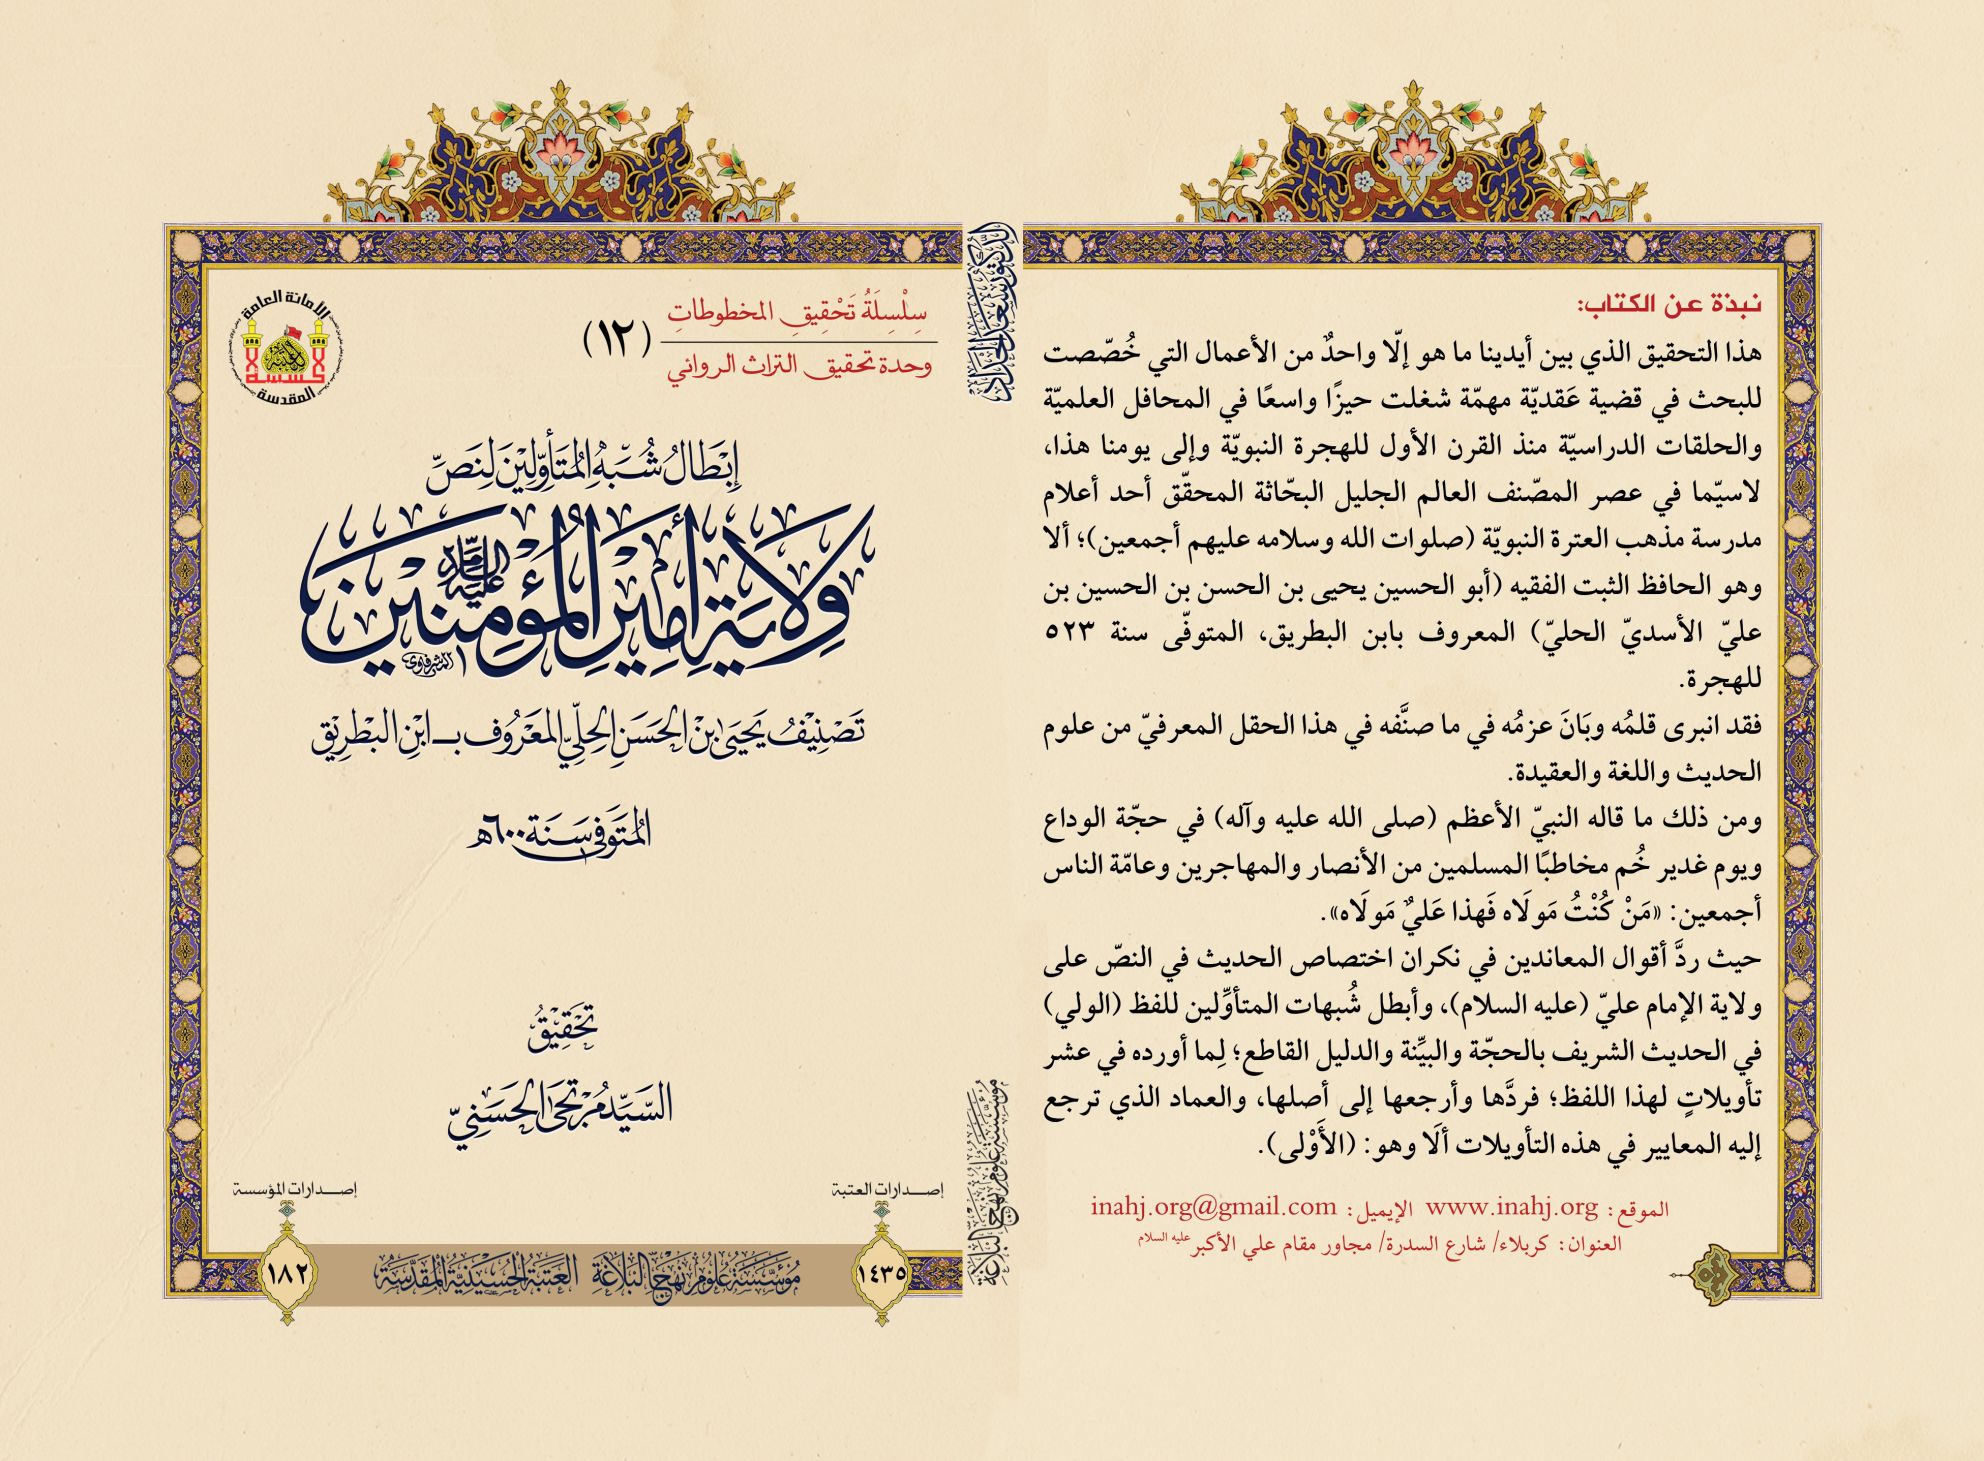 نبذة عن الكتاب:
هذا التحقيق الذي بين أيدينا ما هو إلّا واحدٌ من الأعمال التي خُصّصت
للبحث في قضية عَقديّة مهمّة شغلت حيزًا واسعًا في المحافل العلميّة
والحلقات الدراسيّة منذ القرن الأول للهجرة النبويّة وإلى يومنا هذا،
لاسيّما في عصر المصّنف العالم الجليل البحّاثة المحقّق أحد أعلام
مدرسة مذهب العترة النبويّة (صلوات الله وسلامه عليهم أجمعين)؛ ألا
وهو الحافظ الثبت الفقيه (أبو الحسين يحيى بن الحسن بن الحسين بن
عليّ الأسديّ الحليّ) المعروف بابن البطريق، المتوفّى سنة ٥٢٣
للهجرة.
فقد انبرى قلمُه وبَانَ عزمُه في ما صنَّفه في هذا الحقل المعرفيّ من علوم
الحديث واللغة والعقيدة.
ومن ذلك ما قاله النبيّ الأعظم (صلى الله عليه وآله) في حجّة الوداع
ويوم غدير خُم مخاطبًا المسلمين من الأنصار والمهاجرين وعامّة الناس
أجمعين: «مَنْ كُنْتُ مَولَاه فَهذا عَليٌ مَولَاه».
حيث ردَّ أقوال المعاندين في نكران اختصاص الحديث في النصّ على
ولاية الإمام عليّ (عليه السلام)، وأبطل شُبهات المتأوِّلين للفظ (الولي)
في الحديث الشريف بالحجّة والبيِّنة والدليل القاطع؛ لِما أورده في عشر
تأويلاتٍ لهذا اللفظ؛ فردَّها وأرجعها إلى أصلها، والعماد الذي ترجع
إليه المعايير في هذه التأويلات ألَا وهو: (الأَوْلى).
الموقع: www.inahj.org الإيميل: inahj.org@gmail.com
العنوان: كربلاء/ شارع السدرة/ مجاور مقام علي الأكبر عليه السلام
مؤسسة علوم نهج البلاغة
سِلْسِلَةُ تَحْقِيقِ المخطوطاتِ
(١٢)
وحدة تحقيق التراث الروائي
الأمانة العامة
للعتبة
الحسينية
المقدسة
إِبْطَالُ شُبَهِ المُتَأَوِّلِيْنَ لِنَصِّ
وِلَايَةِ أَمِيرِ المُؤْمِنِينَ عليه السلام
تَصْنِيْفُ يَحْيَى بْنِ الْحَسَنِ الحِلِّيّ المَعْرُوف بـ ابْنِ البْطرِيْق
المُتَوَفى سَنَة ٦٠٠هـ
تَحْقِيْقُ
السَّيِّد مُرْتَضَى الحَسَنِيّ
إصدارات العتبة
إصدارات المؤسسة
١٤٣٥
مُؤَسَّسَةُ عُلُومِ نَهْجِ البَلَاغَةِ
العَتَبَةُ الحُسَيْنِيَّةُ المُقَدَّسَةُ
١٨٢